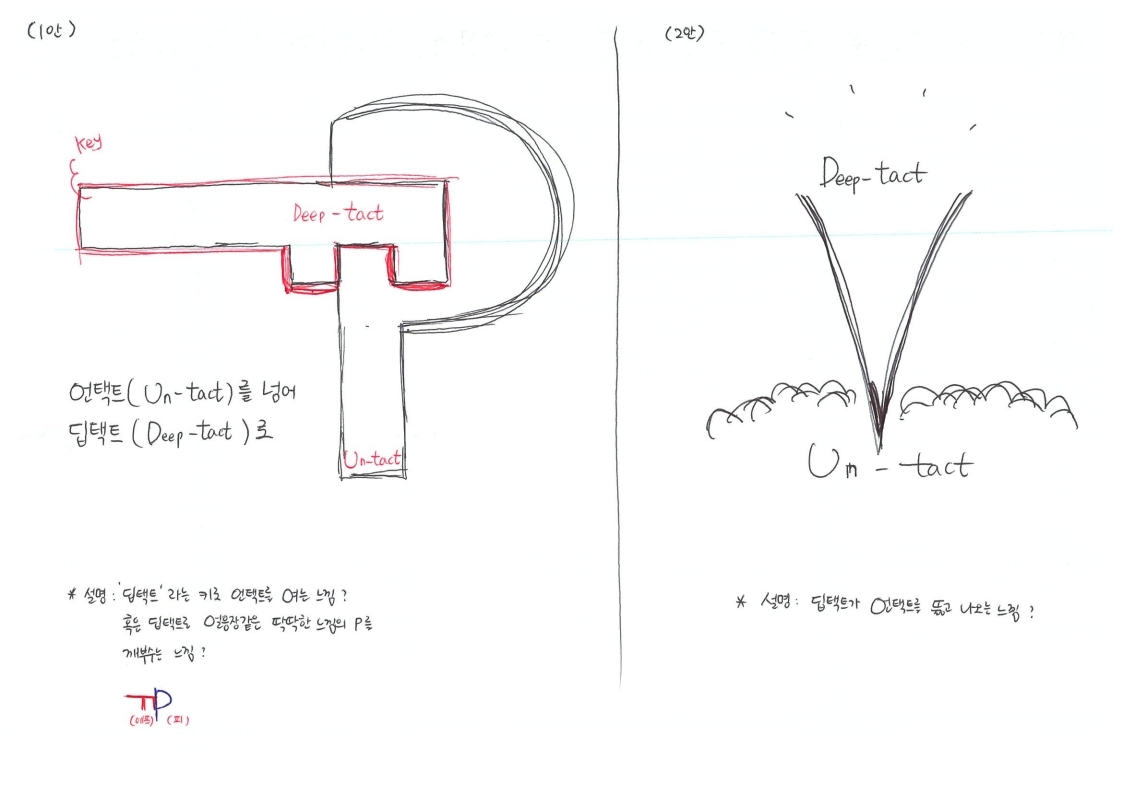 (1안)
Key
Deep-tact
언택트(Un-tact)를 넘어
딥택트(Deep-tact)로
Un-tact
* 설명: '딥택트'라는 키로 언택트를 여는 느낌?
혹은 딥택트로 얼음장같은 딱딱한 느낌의 P를
깨부수는 느낌?
(에프) (피)
(2안)
Deep-tact
Un-tact
* 설명: 딥택트가 언택트를 뚫고 나오는 느낌?